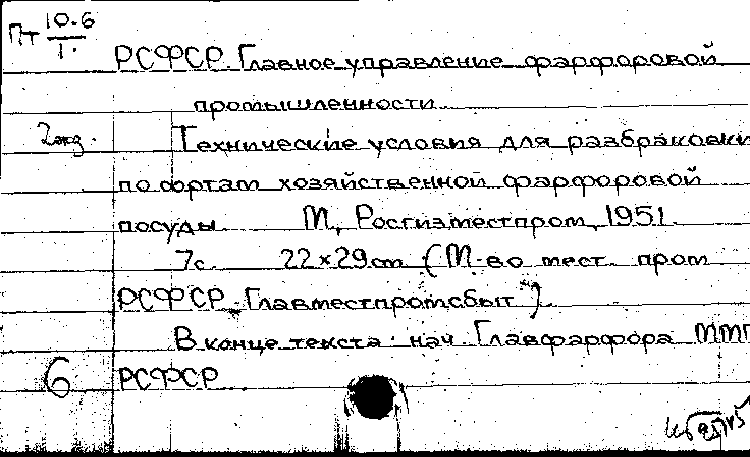 Пт 10.6
1.
РСФСР. Главное управление фарфоровой
промышленности
2 экз.
Технические условия для разбраковки
по сортам хозяйственной фарфоровой
посуды. М, Росгизместпром, 1951.
7с. 22×29cm (М-во мест. пром
РСФСР. "Главместпромсбыт").
В конце текста: нач. Главфарфора ММП
6 РСФСР